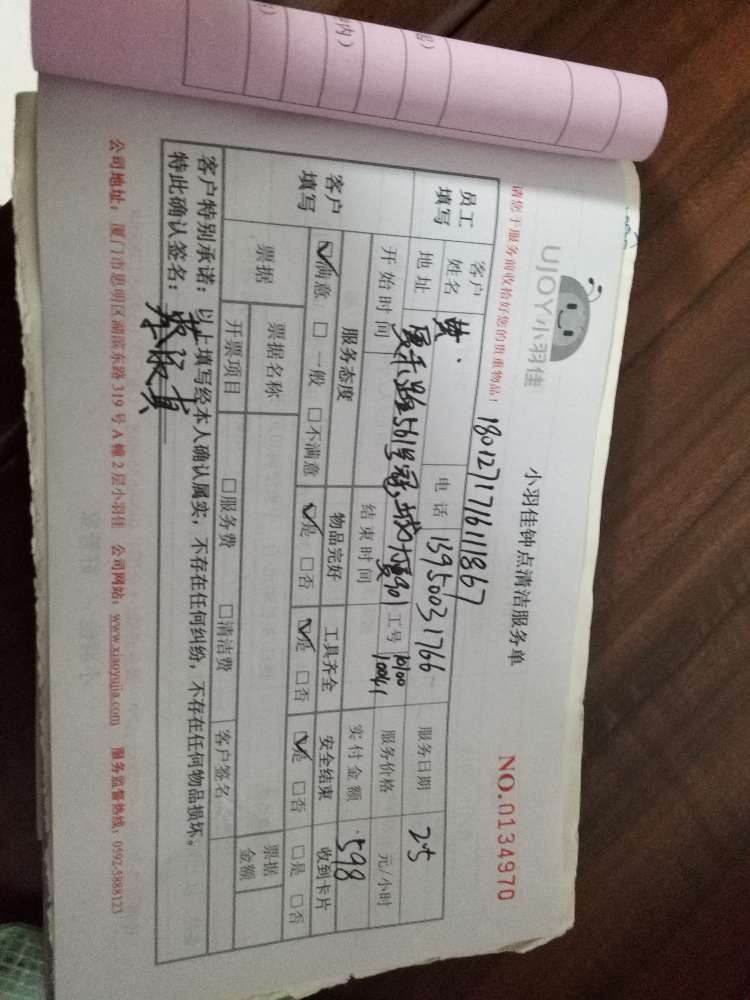 UJOY小羽佳
小羽佳钟点清洁服务单
NO.0134970
请您于服务前收拾好您的贵重物品!
180127171611867
员工填写
客户姓名 黄 电话 13950031766 服务日期 25
地址 厦禾路561号冠城大厦901 工号 10100 10041 服务价格 元/小时
开始时间 结束时间 实付金额 598
客户填写
服务态度 物品完好 工具齐全 安全结束 收到卡片
☑满意 □一般 □不满意 ☑是 □否 ☑是 □否 ☑是 □否 □是 □否
票据 票据名称 票据金额
开票项目 □服务费 □清洁费 客户签名
客户特别承诺:以上填写经本人确认属实,不存在任何纠纷,不存在任何物品损坏。
特此确认签名:
公司地址:厦门市思明区湖滨东路319号A幢2层小羽佳 公司网站:www.xiaoyujia.com 服务监督热线:0592-5888123